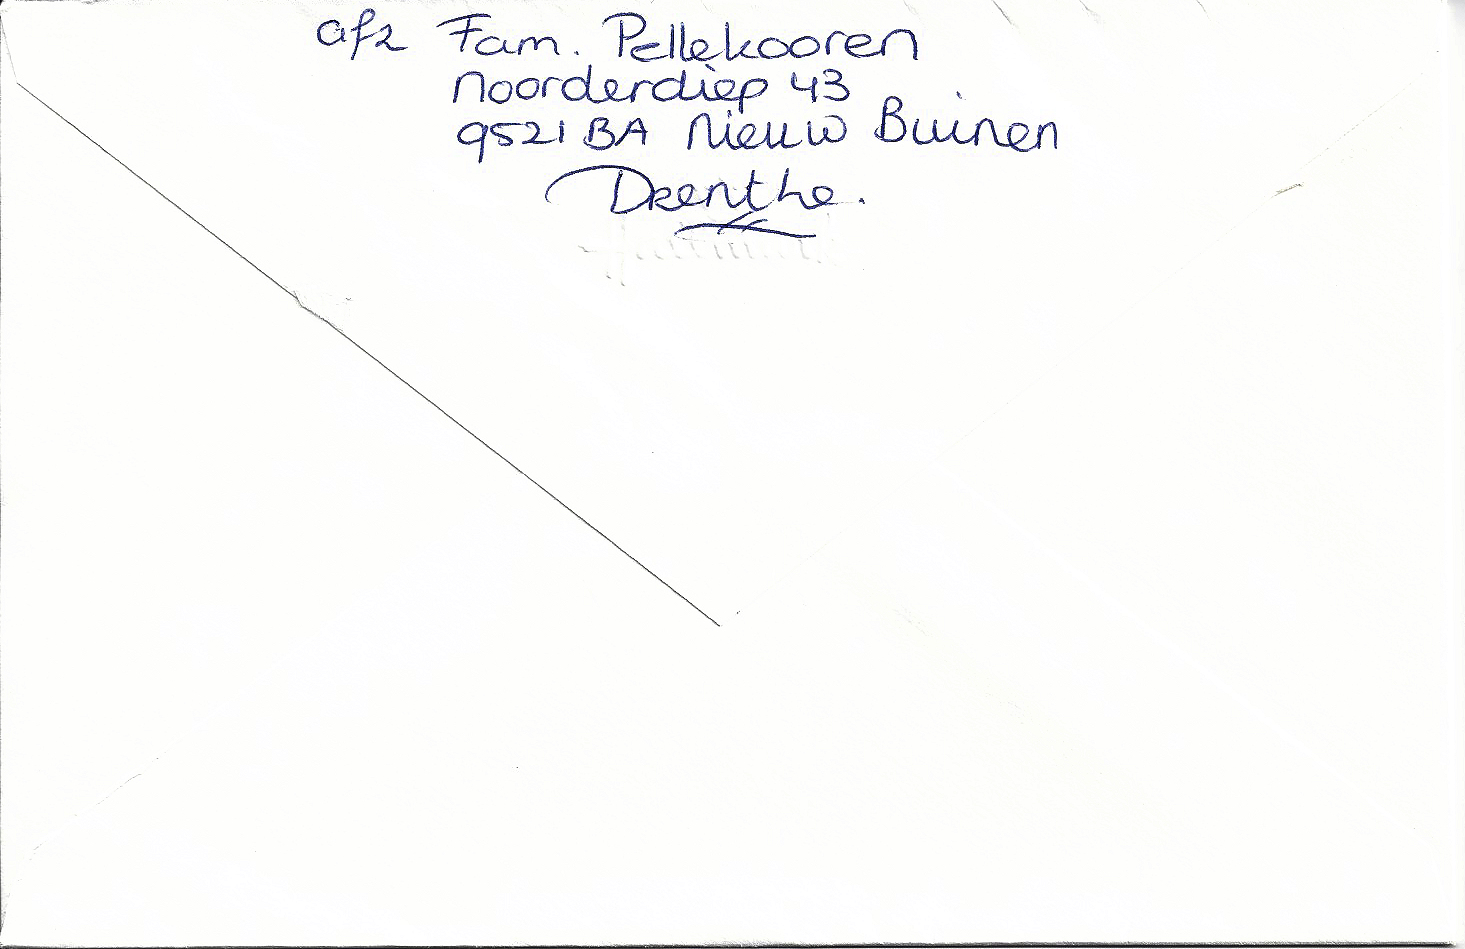 afz Fam. Pellekooren
Noorderdiep 43
9521 BA Nieuw Buinen
Drenthe.